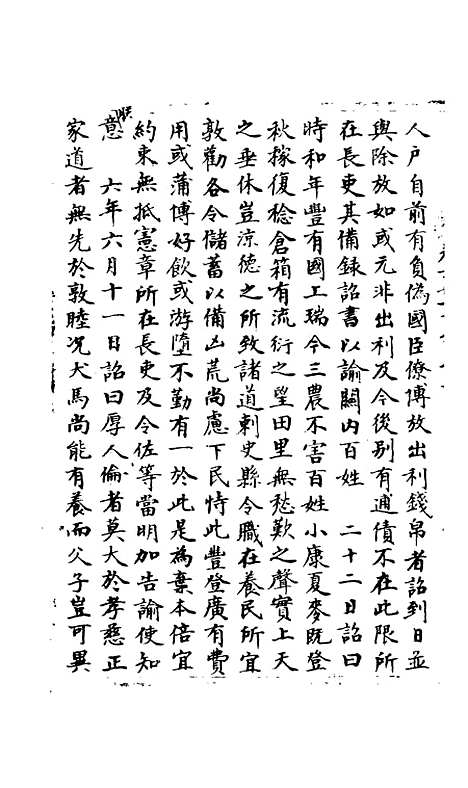 人户自前有負偽國臣僚博放出利錢帛者詔到日並
與除放如或元非出利及今後別有逋債不在此限所
在長吏其備録詔書以諭關内百姓　二十二日詔曰
時和年豐有國上瑞今三農不害百姓小康夏麥既登
秋稼復稔倉箱有流衍之望田里無愁歎之聲實上天
之垂休豈涼德之所致諸道刺史縣令職在養民所宜
敦勸各令儲蓄以備凶荒尚慮下民恃此豐登廣有費
用或蒲博好飲或游墮不勤有一於此是為棄本倍宜
約束無抵憲章所在長吏及令佐等當明加告諭使知
朕意　六年六月十一日詔曰厚人倫者莫大於孝慈正
家道者無先於敦睦況犬馬尚能有養而父子豈可異